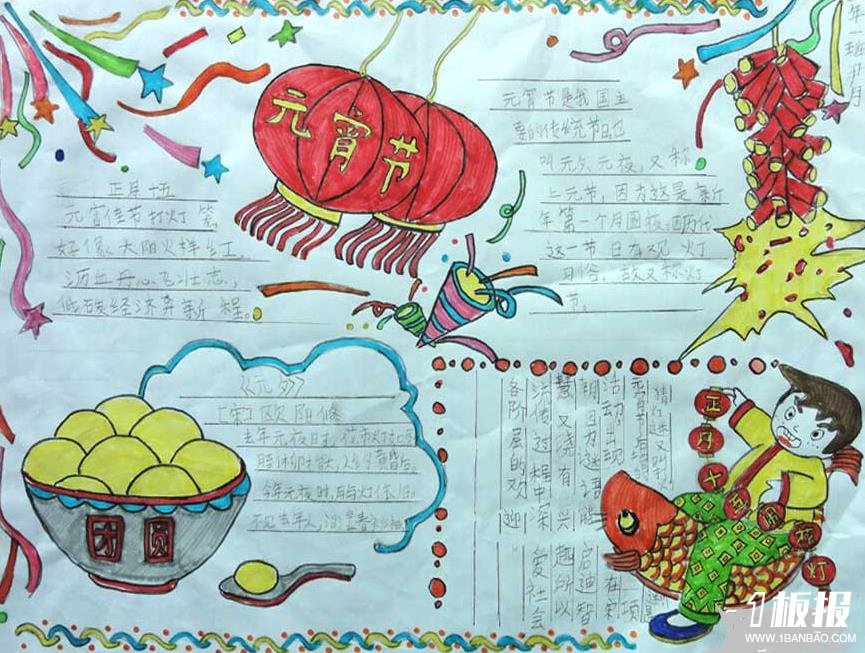 元宵节
年一班 月
元宵节是我国主
要的传统节日,也
叫元夕、元夜,又称
上元节,因为这是新
年第一个月圆夜.因历代
这一节日有观灯
习俗,故又称灯
节。
正月十五
元宵佳节打灯笼
好像太阳火样红。
沥血丹心飞壮志,
低碳经济奔新程。
《元夕》
[宋]欧阳修
去年元夜时,花市灯如
人约黄昏后。
今年元夜时,月与灯依旧。
不见去年人,泪湿春衫袖
团圆
猜灯谜又
活动,出现在宋
朝因为这语能启迪智
慧又饶有兴趣所以
流传过程中深受社会
各阶层的欢迎
正月十五 花灯
板报
WWW.1BANBAO.COM